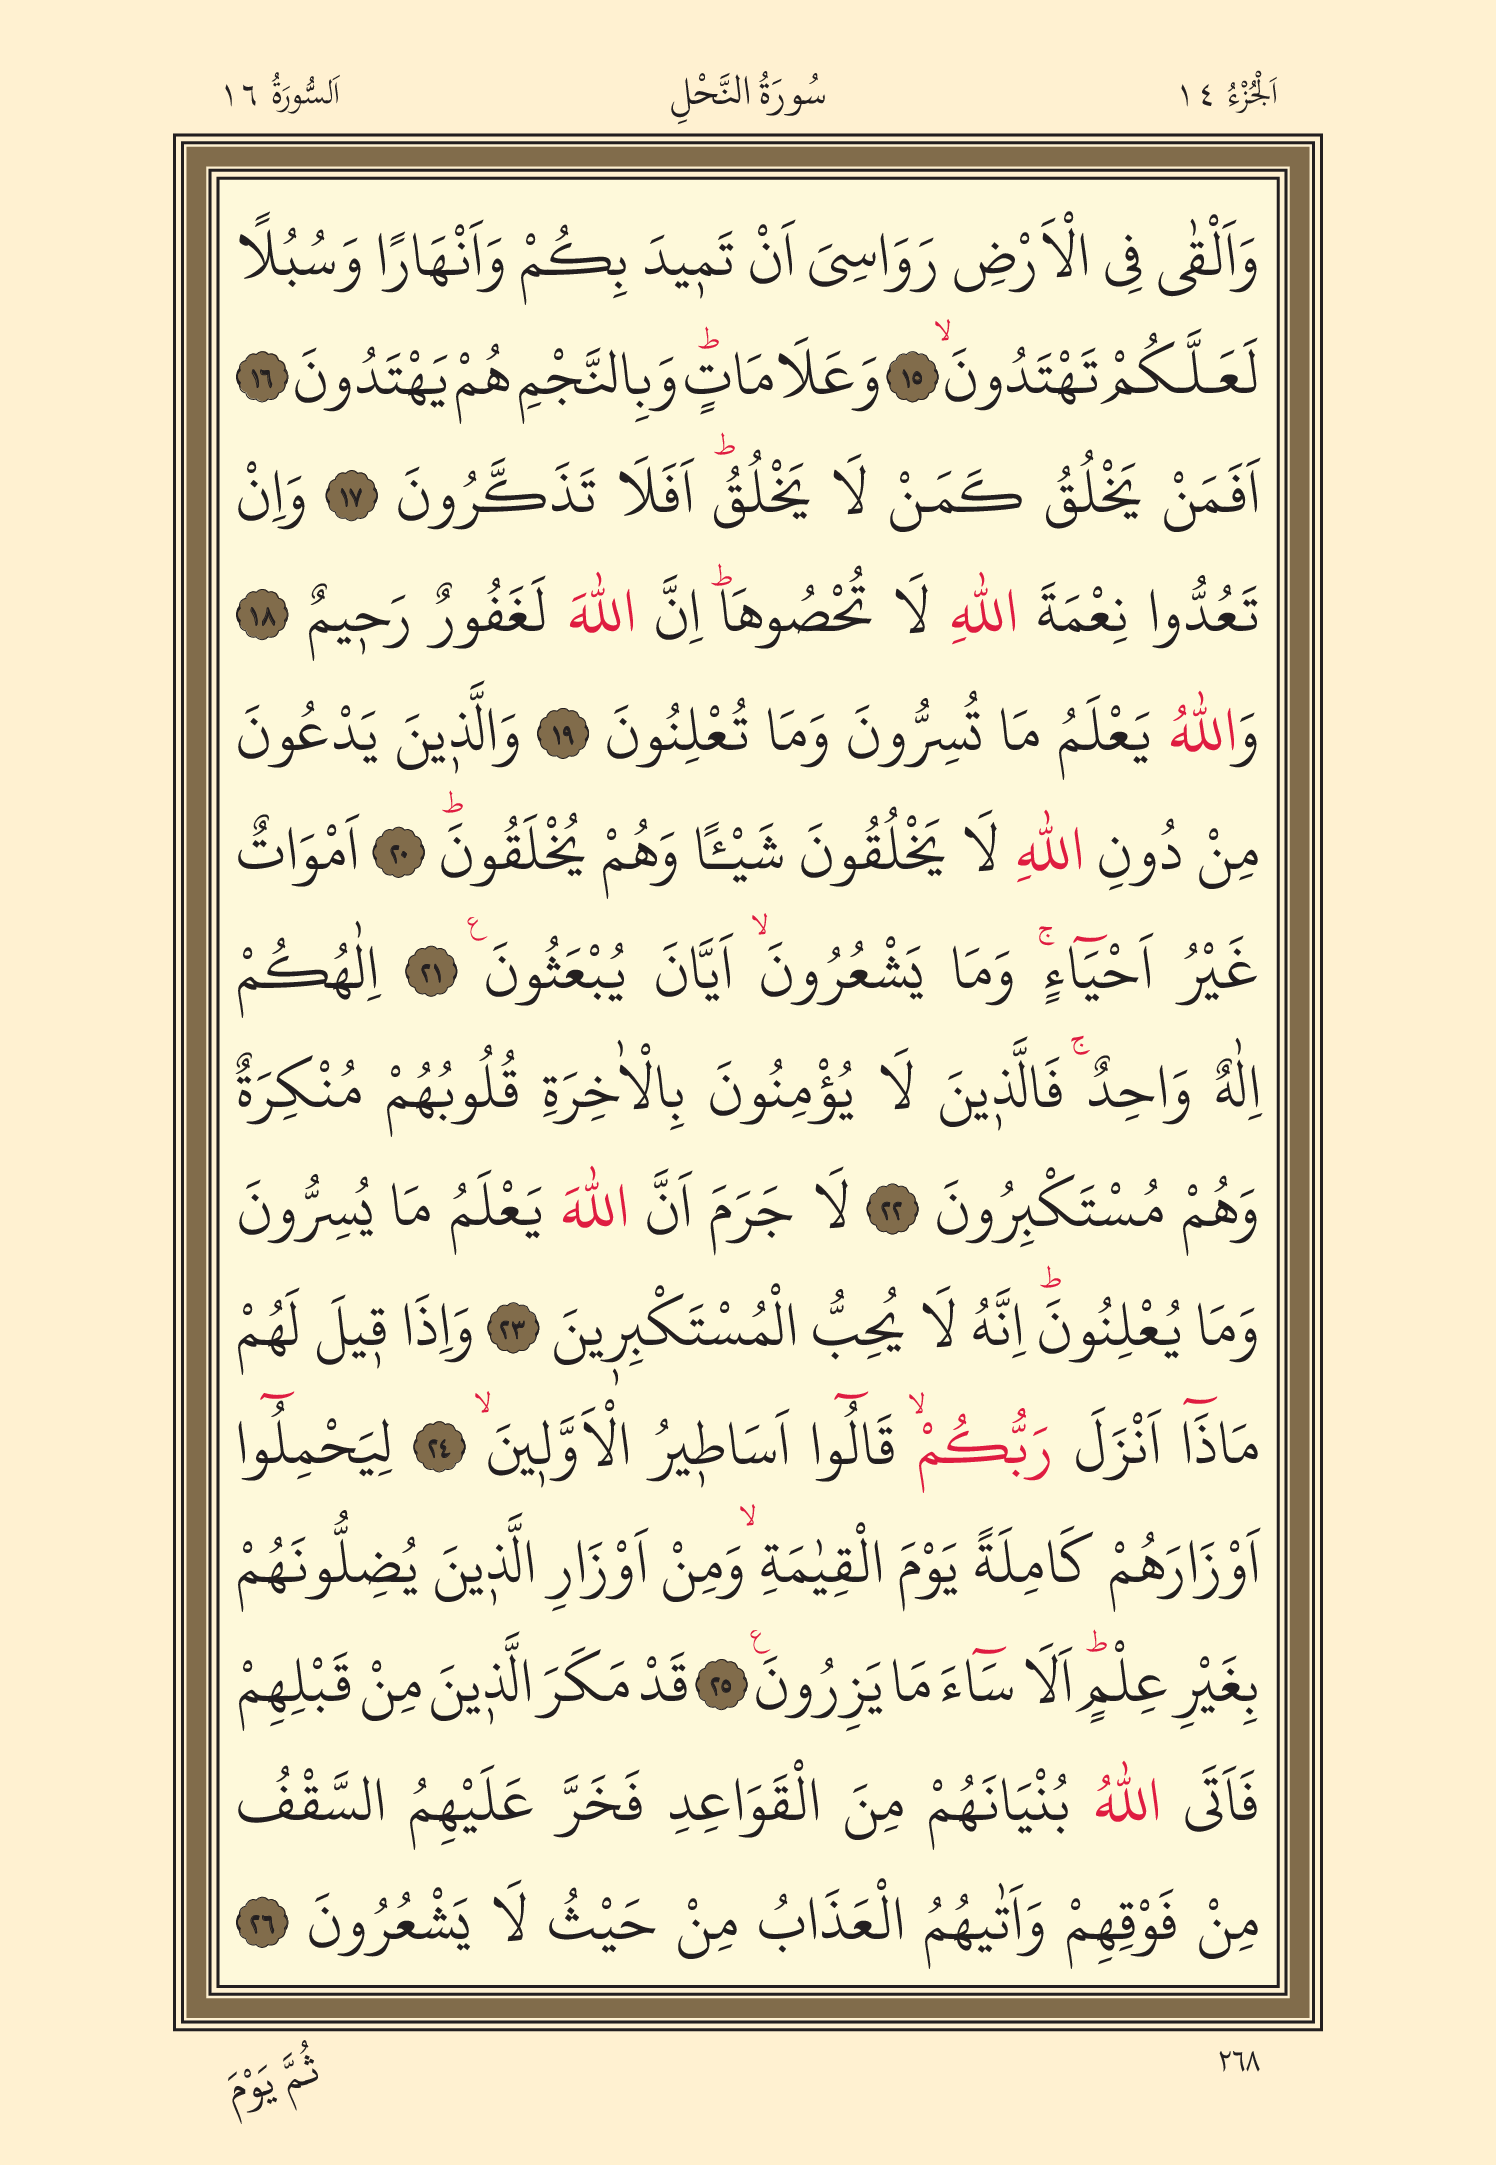 اَلْجُزْءُ ١٤
سُورَةُ النَّحْلِ
اَلسُّورَةُ ١٦
وَاَلْقٰى فِى الْاَرْضِ رَوَاسِىَ اَنْ تَم۪يدَ بِكُمْ وَاَنْهَارًا وَسُبُلًا
لَعَلَّكُمْ تَهْتَدُونَۙ ١٥ وَعَلَامَاتٍۜ وَبِالنَّجْمِ هُمْ يَهْتَدُونَ ١٦
اَفَمَنْ يَخْلُقُ كَمَنْ لَا يَخْلُقُۜ اَفَلَا تَذَكَّرُونَ ١٧ وَاِنْ
تَعُدُّوا نِعْمَةَ اللّٰهِ لَا تُحْصُوهَاۜ اِنَّ اللّٰهَ لَغَفُورٌ رَح۪يمٌ ١٨
وَاللّٰهُ يَعْلَمُ مَا تُسِرُّونَ وَمَا تُعْلِنُونَ ١٩ وَالَّذ۪ينَ يَدْعُونَ
مِنْ دُونِ اللّٰهِ لَا يَخْلُقُونَ شَيْـًٔا وَهُمْ يُخْلَقُونَۜ ٢٠ اَمْوَاتٌ
غَيْرُ اَحْيَٓاءٍۚ وَمَا يَشْعُرُونَۙ اَيَّانَ يُبْعَثُونَ ع ٢١ اِلٰهُكُمْ
اِلٰهٌ وَاحِدٌۚ فَالَّذ۪ينَ لَا يُؤْمِنُونَ بِالْاٰخِرَةِ قُلُوبُهُمْ مُنْكِرَةٌ
وَهُمْ مُسْتَكْبِرُونَ ٢٢ لَا جَرَمَ اَنَّ اللّٰهَ يَعْلَمُ مَا يُسِرُّونَ
وَمَا يُعْلِنُونَۜ اِنَّهُ لَا يُحِبُّ الْمُسْتَكْبِر۪ينَ ٢٣ وَاِذَا ق۪يلَ لَهُمْ
مَاذَٓا اَنْزَلَ رَبُّكُمْۙ قَالُٓوا اَسَاط۪يرُ الْاَوَّل۪ينَۙ ٢٤ لِيَحْمِلُٓوا
اَوْزَارَهُمْ كَامِلَةً يَوْمَ الْقِيٰمَةِۙ وَمِنْ اَوْزَارِ الَّذ۪ينَ يُضِلُّونَهُمْ
بِغَيْرِ عِلْمٍۜ اَلَا سَٓاءَ مَا يَزِرُونَ ع ٢٥ قَدْ مَكَرَ الَّذ۪ينَ مِنْ قَبْلِهِمْ
فَاَتَى اللّٰهُ بُنْيَانَهُمْ مِنَ الْقَوَاعِدِ فَخَرَّ عَلَيْهِمُ السَّقْفُ
مِنْ فَوْقِهِمْ وَاَتٰيهُمُ الْعَذَابُ مِنْ حَيْثُ لَا يَشْعُرُونَ ٢٦
٢٦٨
ثُمَّ يَوْمَ